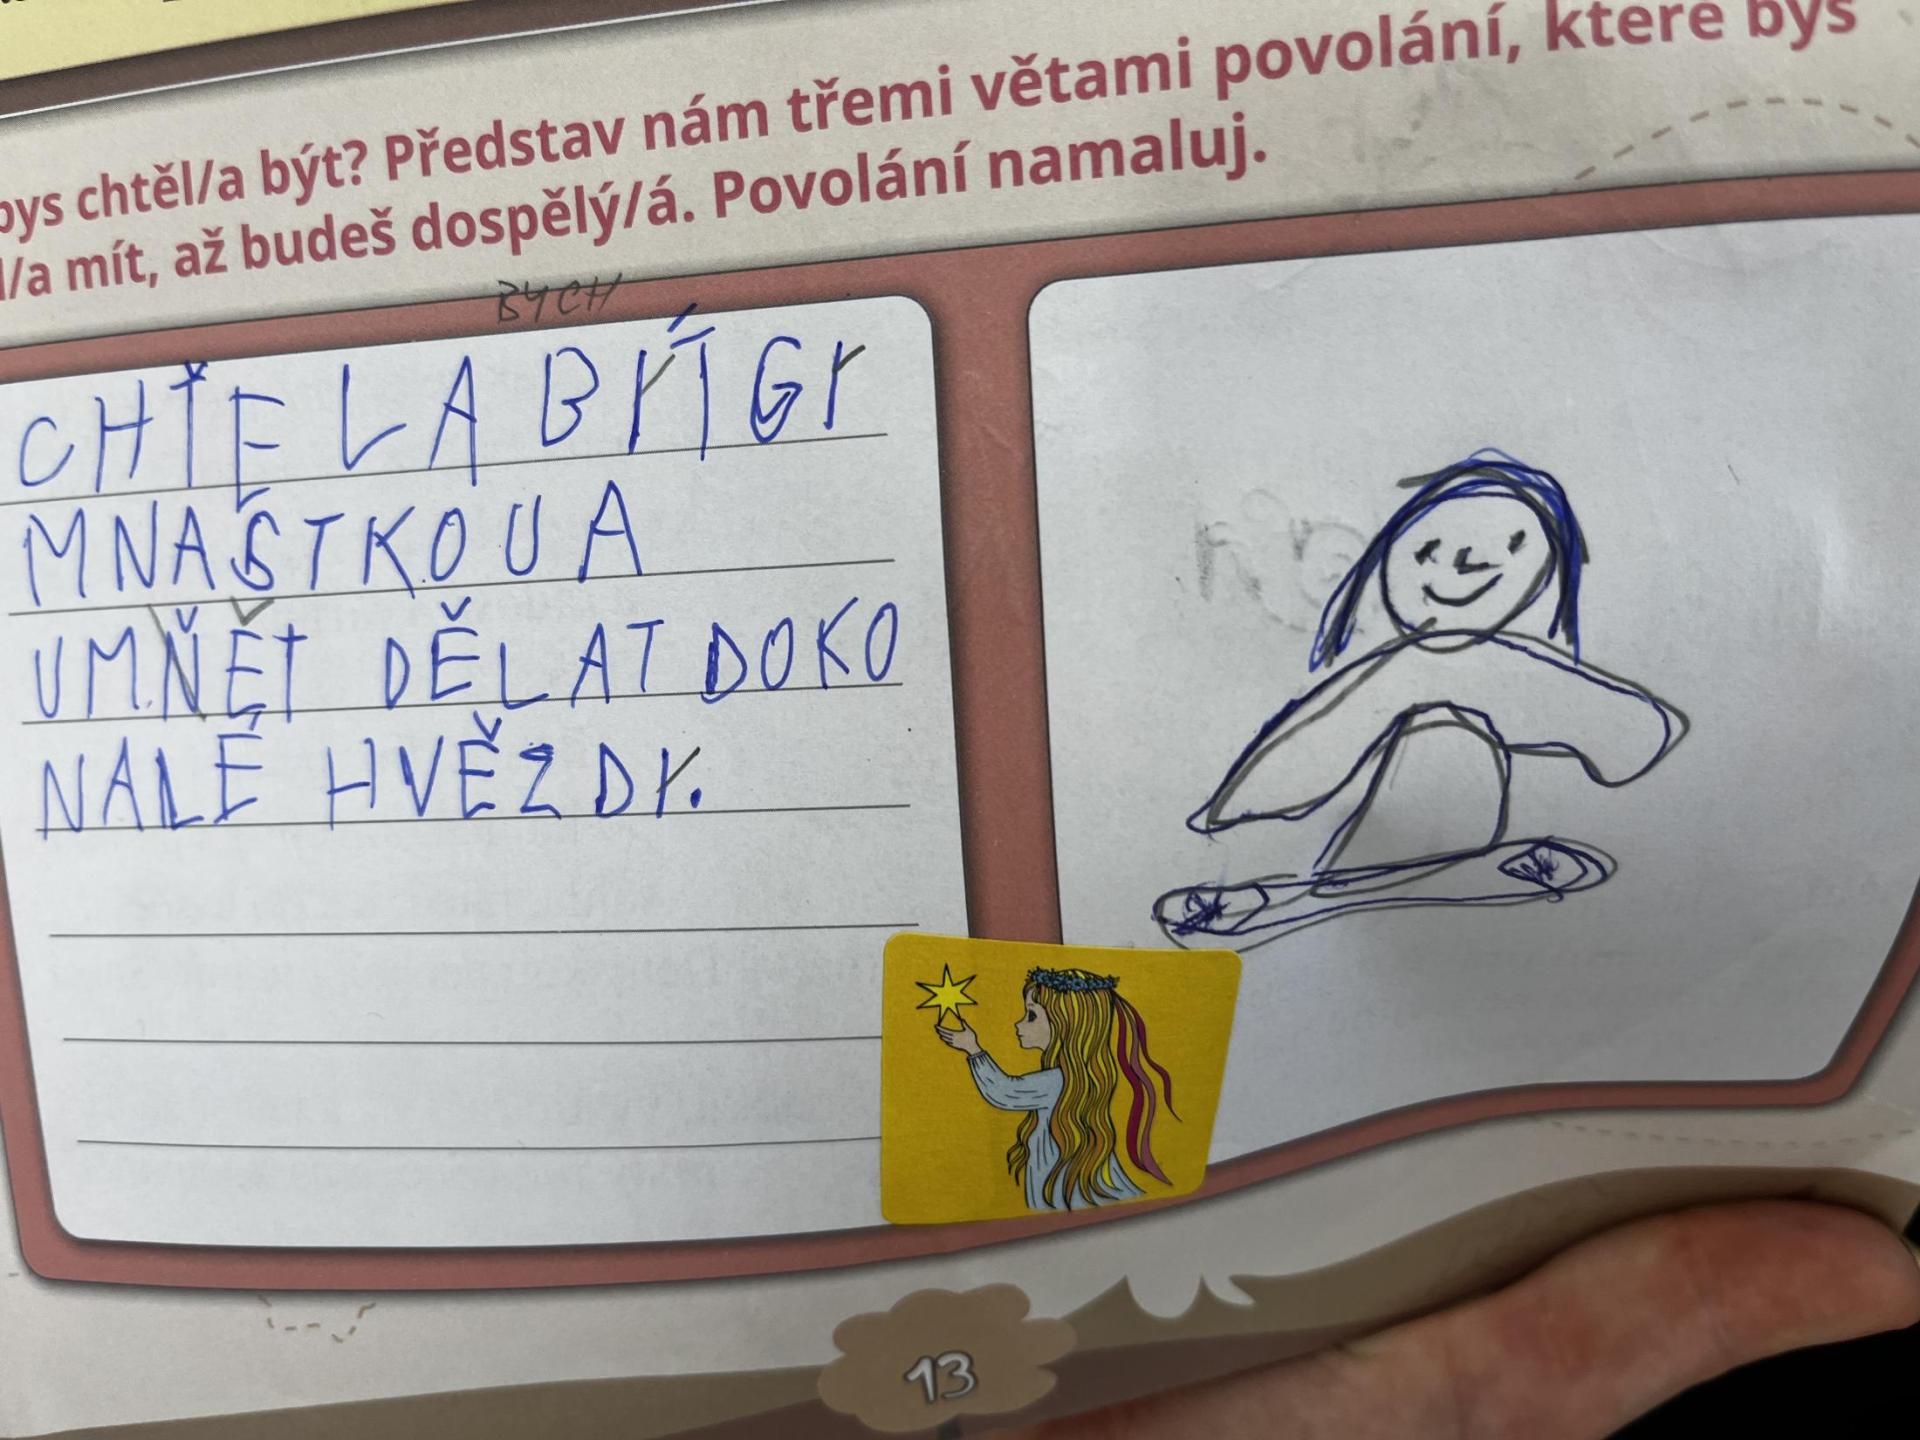 bys chtěl/a být? Představ nám třemi větami povolání, které bys
l/a mít, až budeš dospělý/á. Povolání namaluj.
BYCH
CHŤELA BÝT GY
MNASTKOU A
UMŇĚT DĚLAT DOKO
NALÉ HVĚZDY.
13